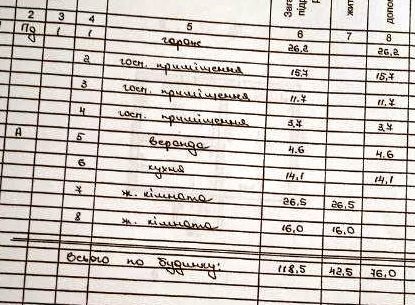 Зага
підр
жит
допо
2 3 4 5 6 7 8
Пд 1 1 гараж 26,2 26,2
2 госп. приміщення 15,7 15,7
3 госп. приміщення 11.7 11.7
4 госп. приміщення 3,7 3,7
А 5 веранда 4.6 4,6
6 кухня 14,1 14,1
7 ж. кімната 26,5 26,5
8 ж. кімната 16,0 16,0
Всього по будинку: 118,5 42,5 76,0